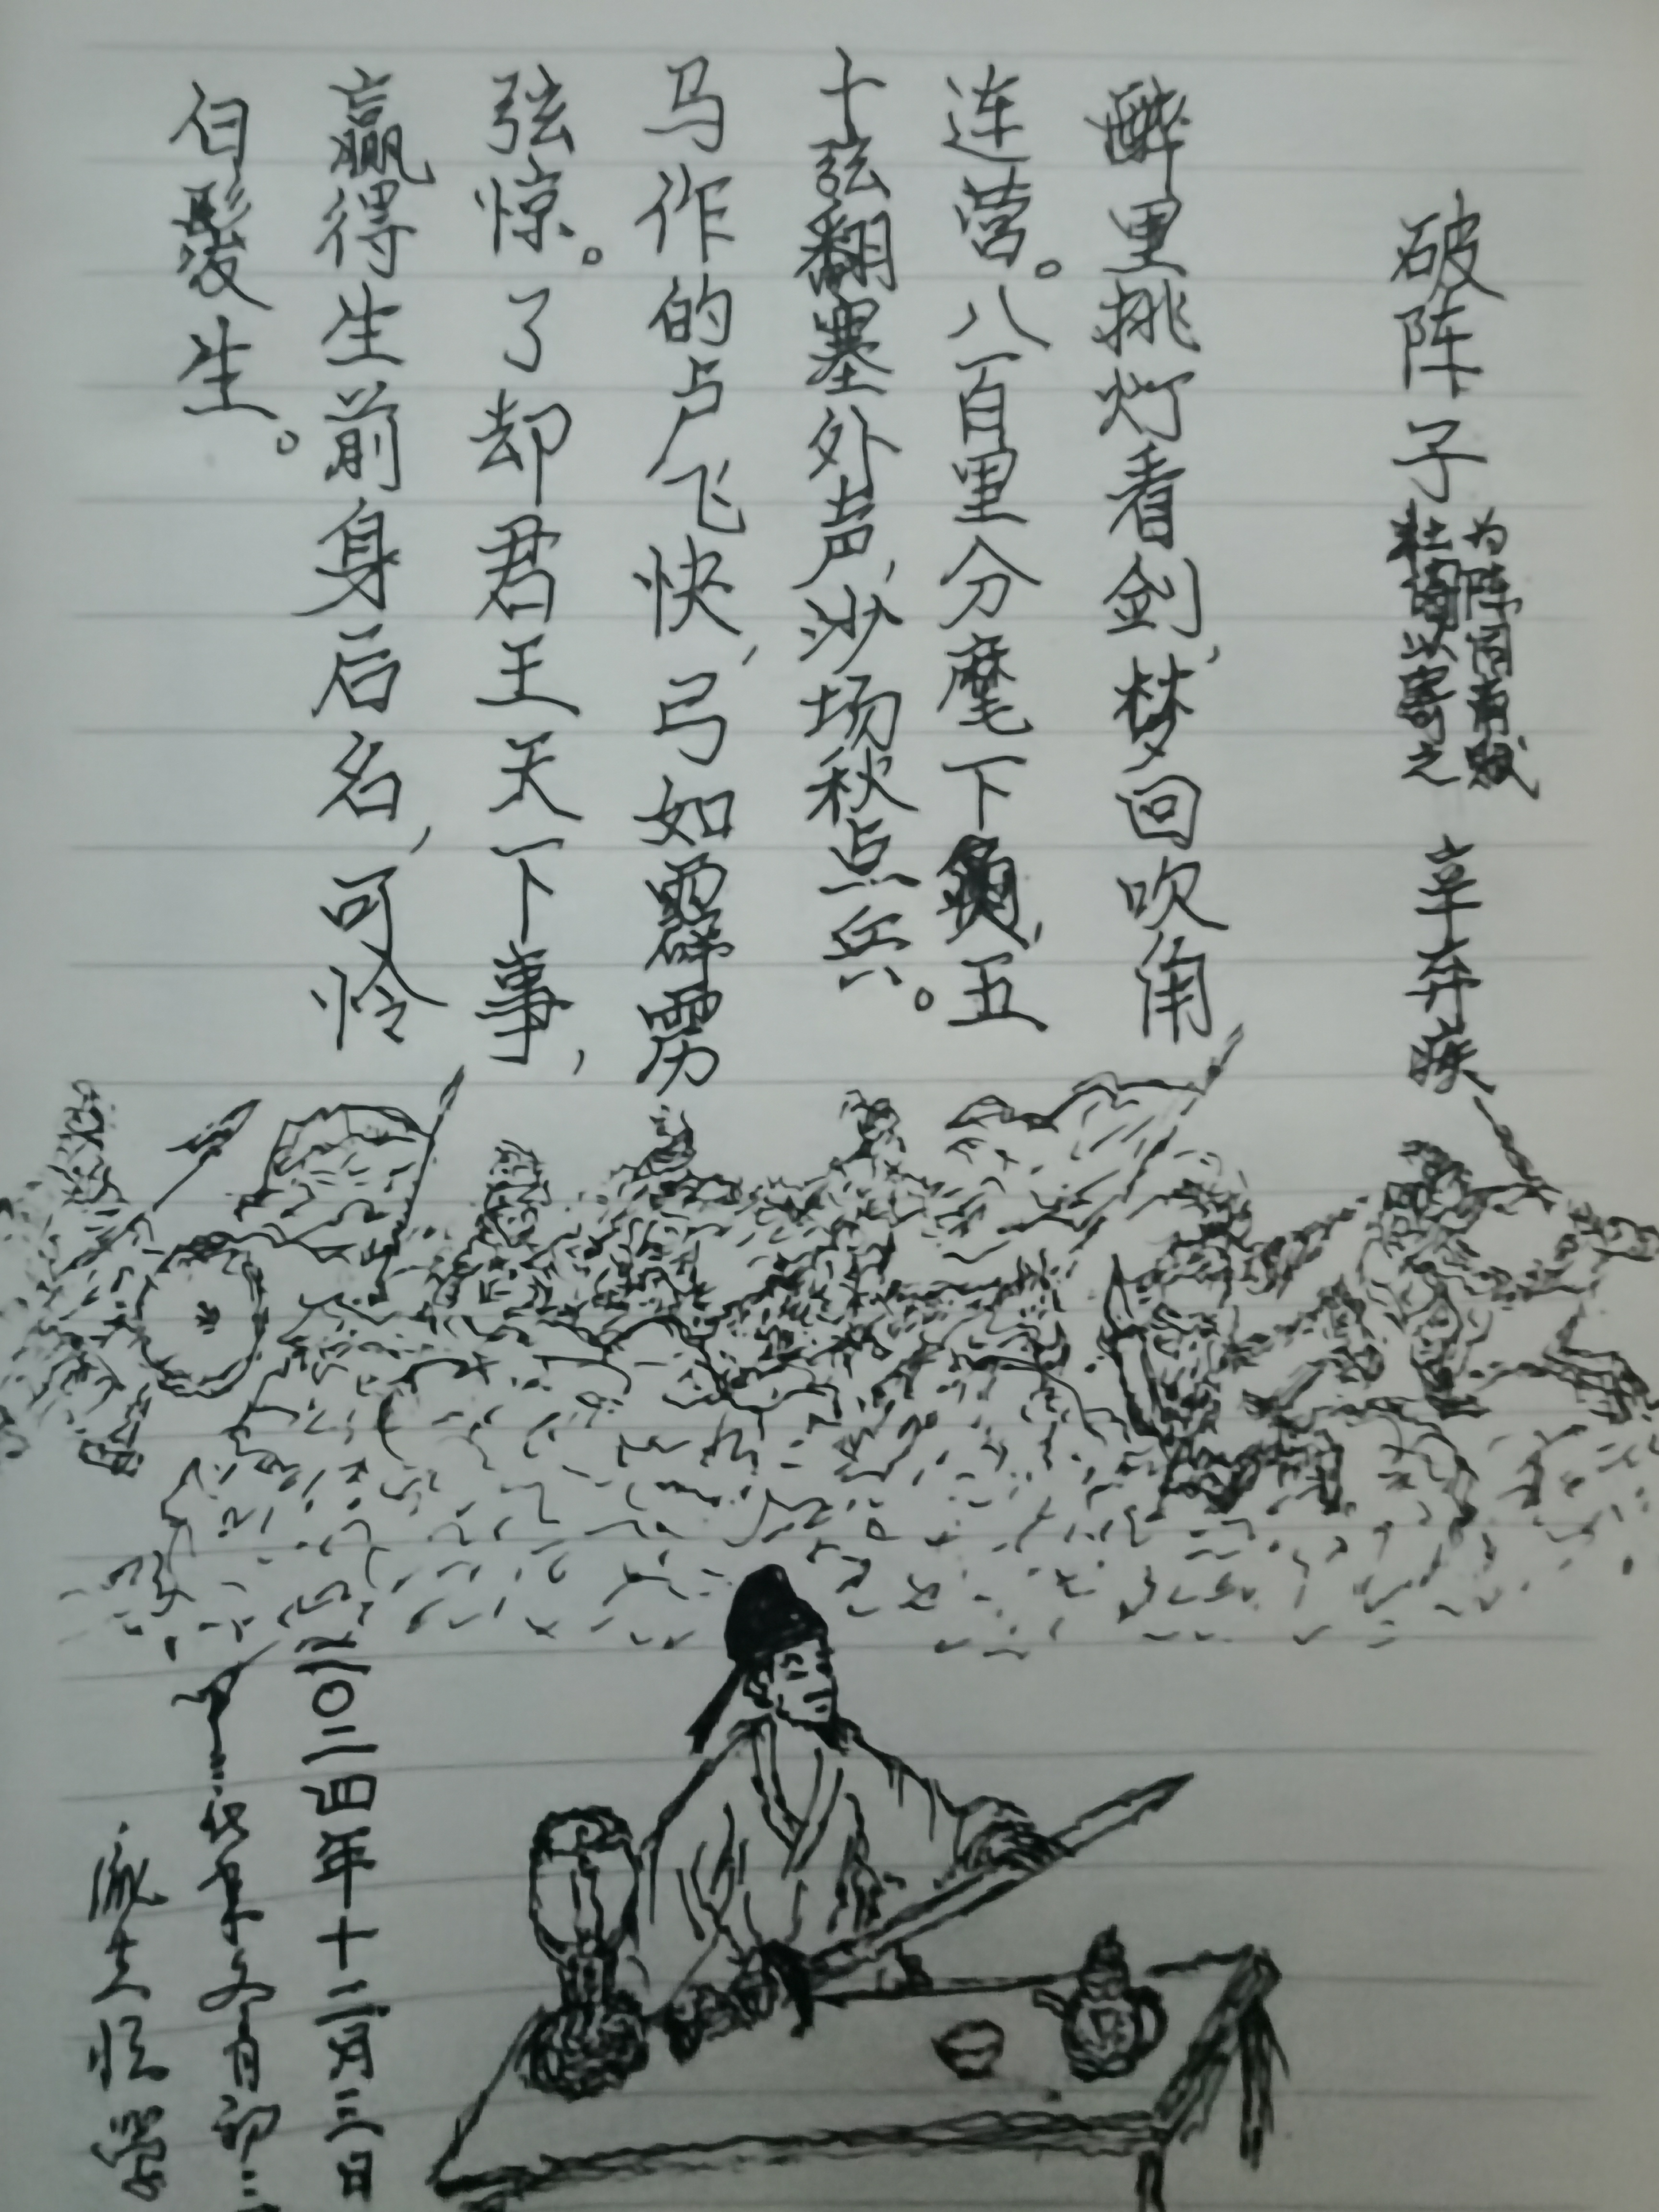 破阵子 为陈同甫赋壮词以寄之 辛弃疾
醉里挑灯看剑,梦回吹角
连营。八百里分麾下炙,五
十弦翻塞外声,沙场秋点兵。
马作的卢飞快,弓如霹雳
弦惊。了却君王天下事,
赢得生前身后名,可怜
白发生。
二〇二四年十二月三日